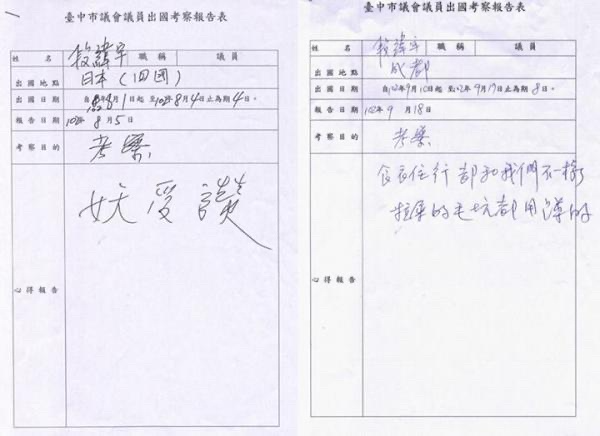 臺中市議會議員出國考察報告表
姓名 段緯宇 職稱 議員
出國地點 日本(四國)
出國日期 自 年8月1日起 至102年8月4日止為期4日。
報告日期 102年8月5日
考察目的 考察
心得報告
妖受讚
臺中市議會議員出國考察報告表
姓名 段緯宇 職稱 議員
出國地點 成都
出國日期 自102年9月10日起 至102年9月17日止為期8日。
報告日期 102年9月18日
考察目的 考察
心得報告
食衣住行都和我們不一樣
拉屎的毛坑都用蹲的